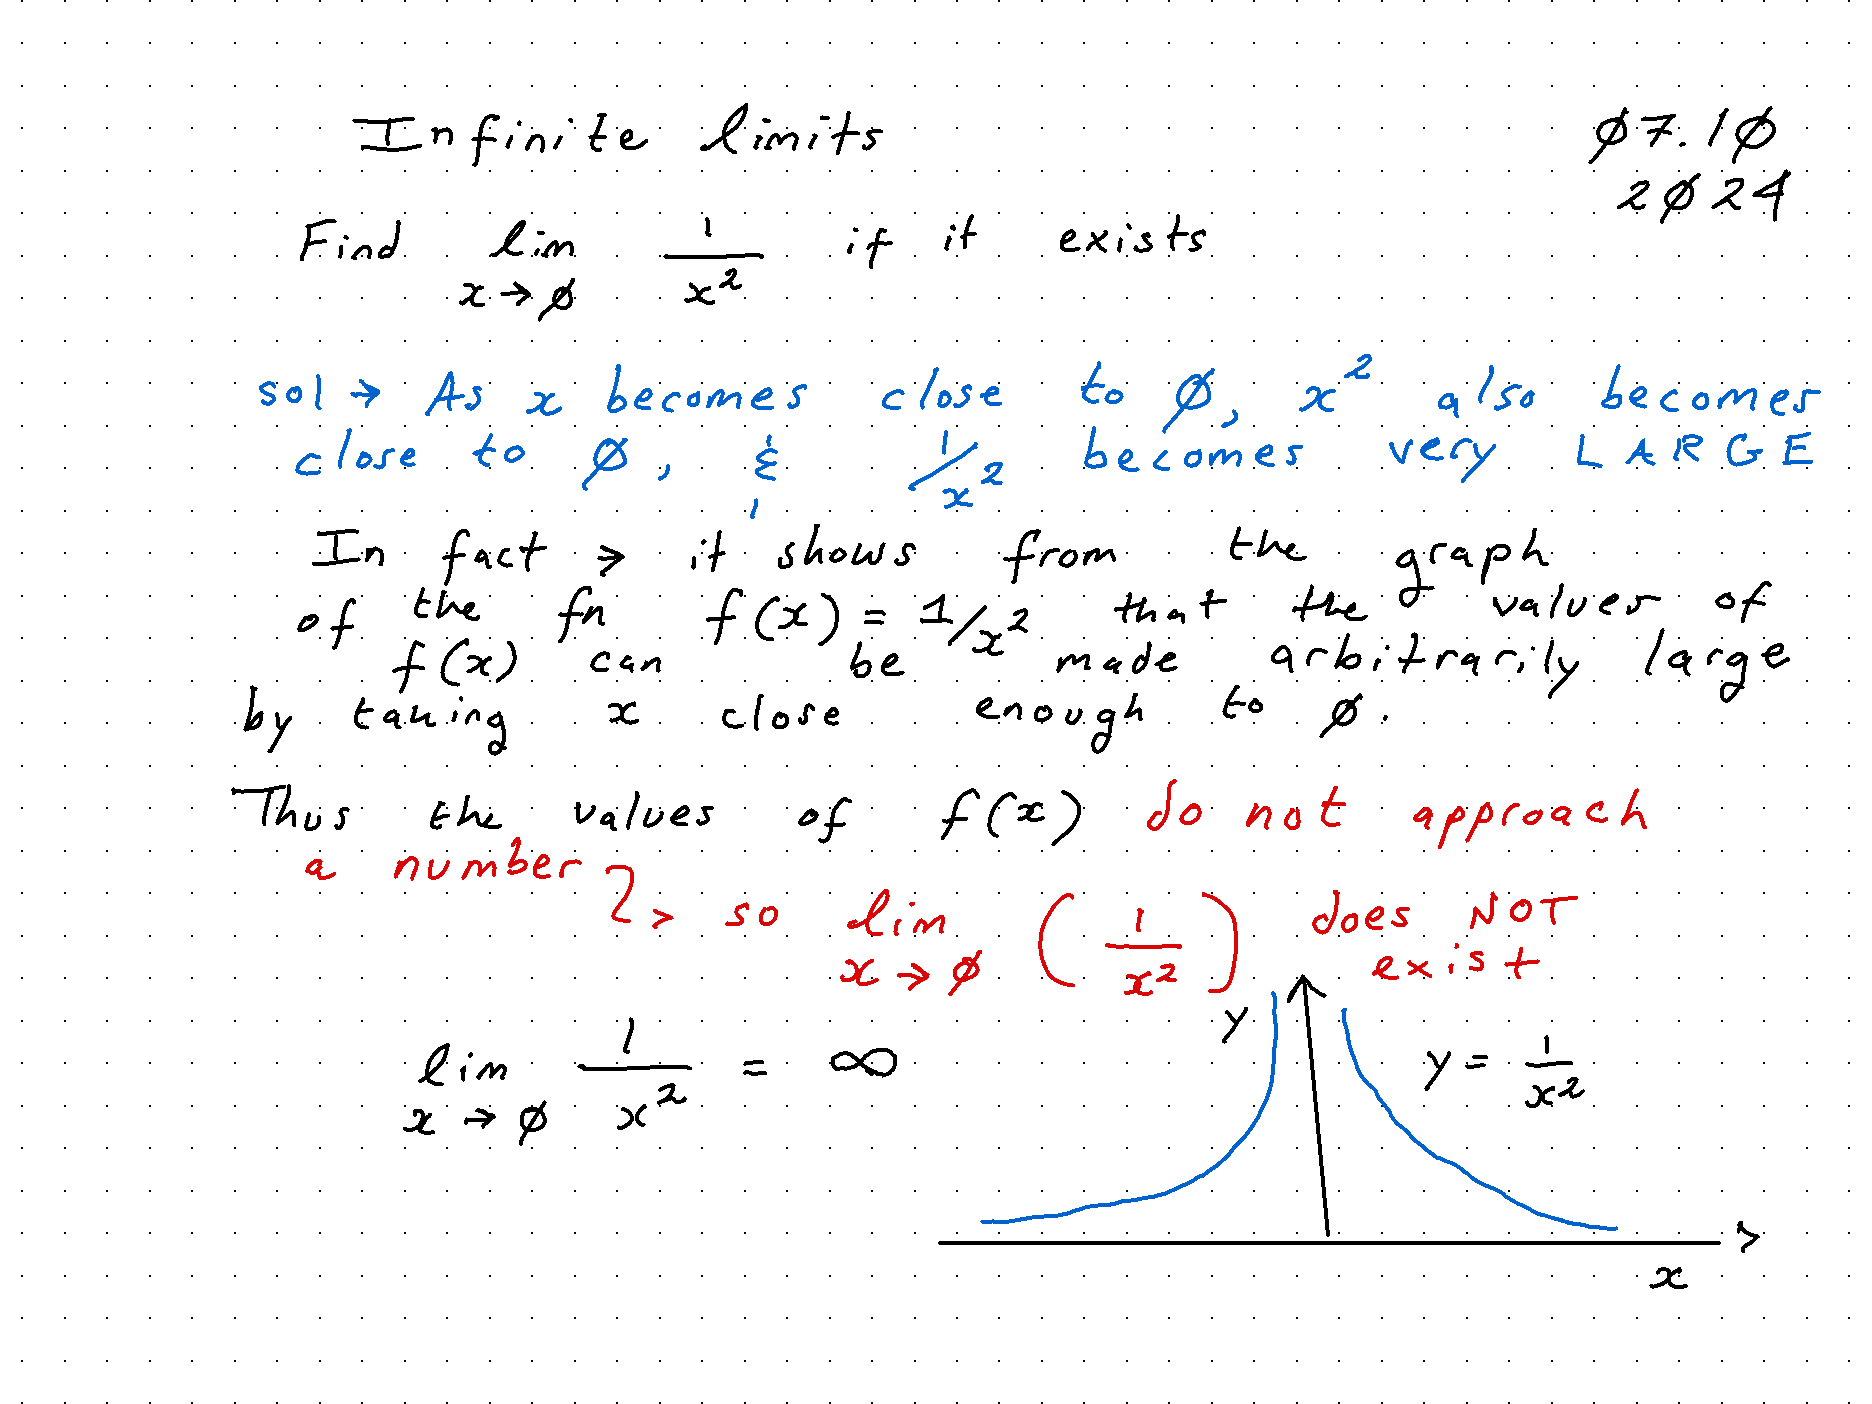 Infinite limits
ø7.1ø
2ø24
Find lim x→ø 1/x² if it exists
sol → As x becomes close to ø, x² also becomes
close to ø, & 1/x² becomes very LARGE
In fact → it shows from the graph
of the fn f(x) = 1/x² that the values of
f(x) can be made arbitrarily large
by taking x close enough to ø.
Thus the values of f(x) do not approach
a number
→ so lim x→ø (1/x²) does NOT
exist
lim x→ø 1/x² = ∞
y
y = 1/x²
x